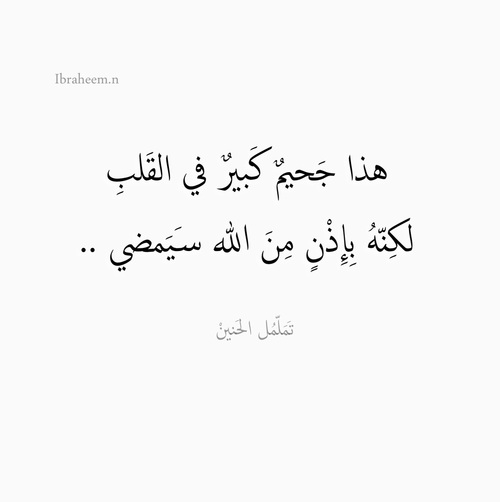 Ibraheem.n
هذا جَحيمٌ كَبيرٌ في القَلبِ
لَكِنّهُ بِإِذْنٍ مِنَ الله سيَمضي ..
تَمَلّمُل الحَنينْ